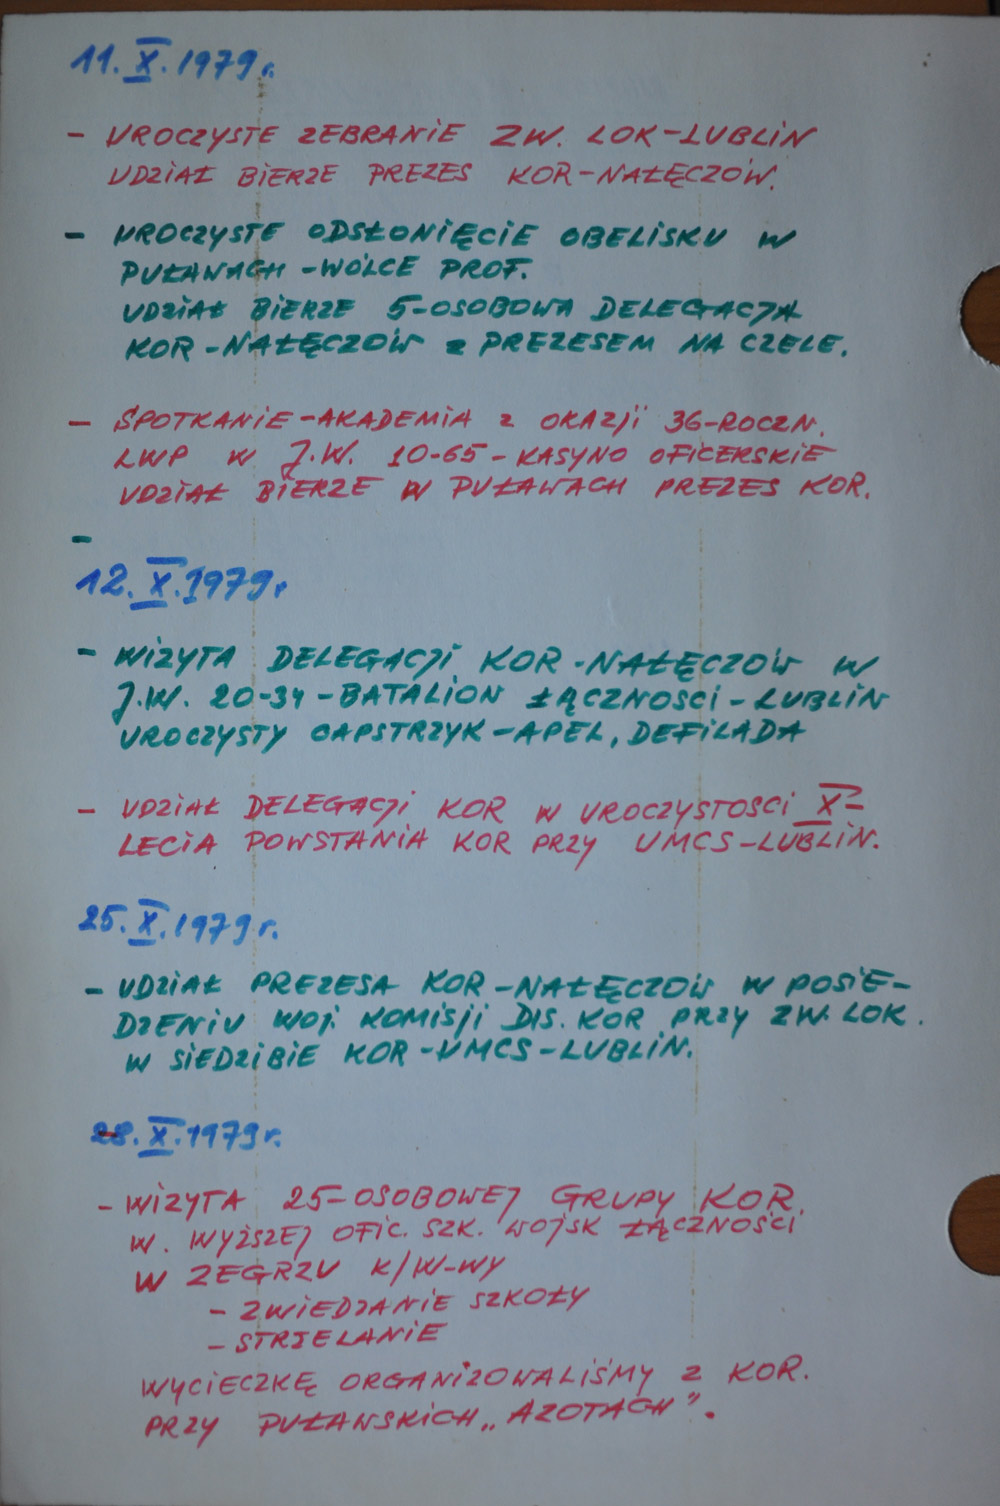 11.X.1979r.
- UROCZYSTE ZEBRANIE ZW. LOK-LUBLIN
UDZIAŁ BIERZE PREZES KOR-NAŁĘCZÓW.
- UROCZYSTE ODSŁONIĘCIE OBELISKU W
PUŁAWACH-WÓLCE PROF.
UDZIAŁ BIERZE 5-OSOBOWA DELEGACJA
KOR-NAŁĘCZÓW Z PREZESEM NA CZELE.
- SPOTKANIE-AKADEMIA Z OKAZJI 36-ROCZN.
LWP W J.W. 10-65-KASYNO OFICERSKIE
UDZIAŁ BIERZE W PUŁAWACH PREZES KOR.
-
12.X.1979r
- WIZYTA DELEGACJI KOR-NAŁĘCZÓW W
J.W. 20-34-BATALION ŁĄCZNOŚCI-LUBLIN
UROCZYSTY CAPSTRZYK-APEL, DEFILADA
- UDZIAŁ DELEGACJI KOR W UROCZYSTOŚCI X-
LECIA POWSTANIA KOR PRZY UMCS-LUBLIN.
25.X.1979r.
- UDZIAŁ PREZESA KOR-NAŁĘCZÓW W POSIE-
DZENIU WOJ. KOMISJI DIS. KOR PRZY ZW. LOK.
W SIEDZIBIE KOR-UMCS-LUBLIN.
28.X.1979r.
- WIZYTA 25-OSOBOWEJ GRUPY KOR.
W. WYŻSZEJ OFIC. SZK. WOJSK ŁĄCZNOŚCI
W ZEGRZU K/W-WY
- ZWIEDZANIE SZKOŁY
- STRZELANIE
WYCIECZKĘ ORGANIZOWALIŚMY Z KOR.
PRZY PUŁAWSKICH „AZOTACH".